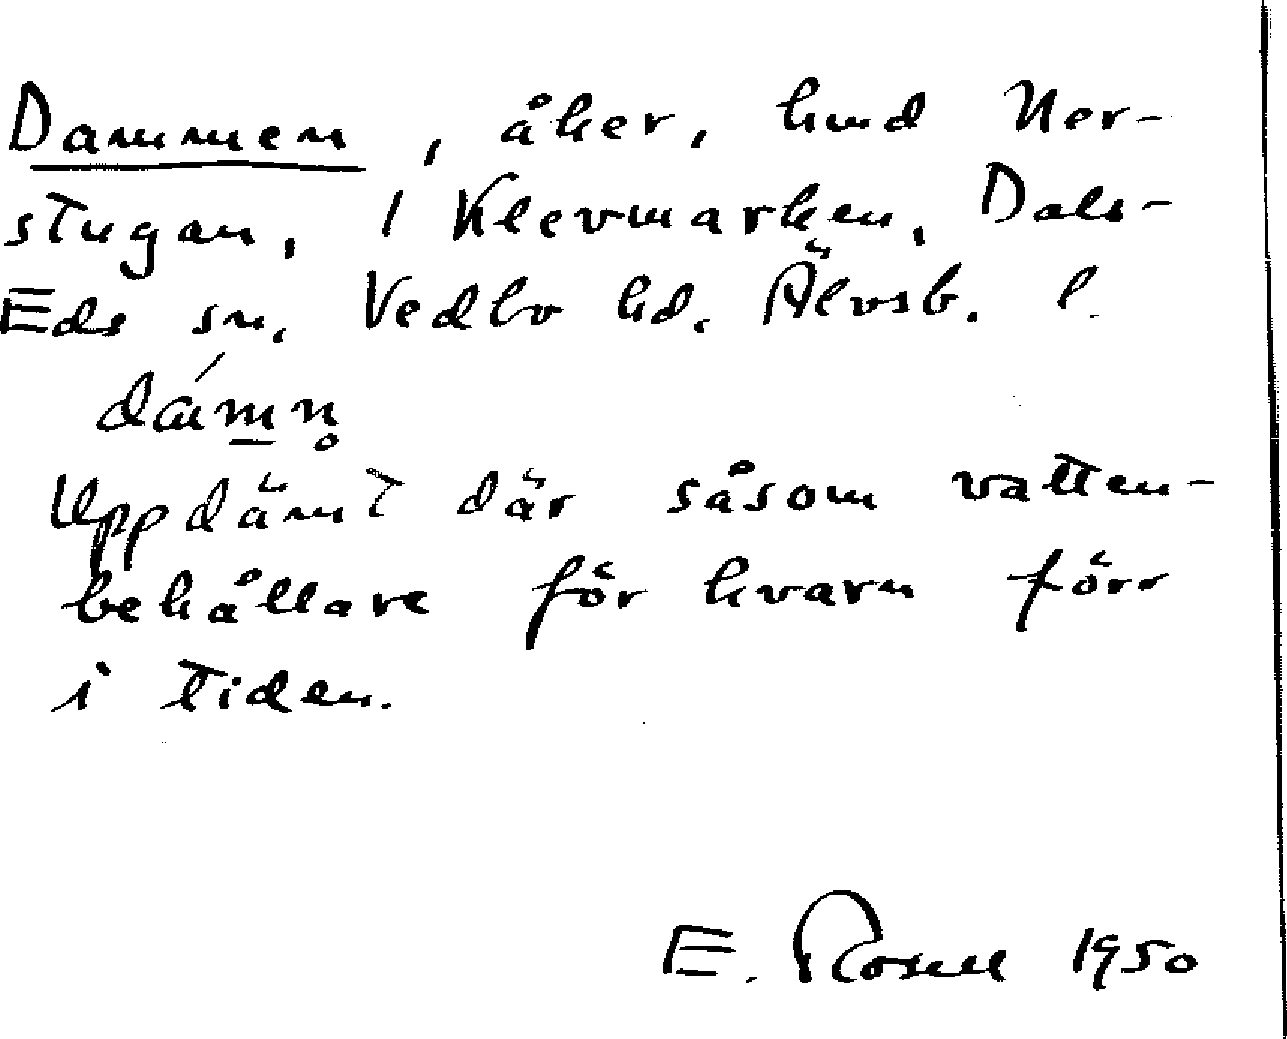 Dammen, åker, hmd Nor-
stugan, 1 Klevmarken, Dals-
Eds sn, Vedbo hd. Älvsb. l.
dám̲n̥
Uppdämt där såsom vatten-
behållare för kvarn förr
i tiden.
E. Rosell 1950